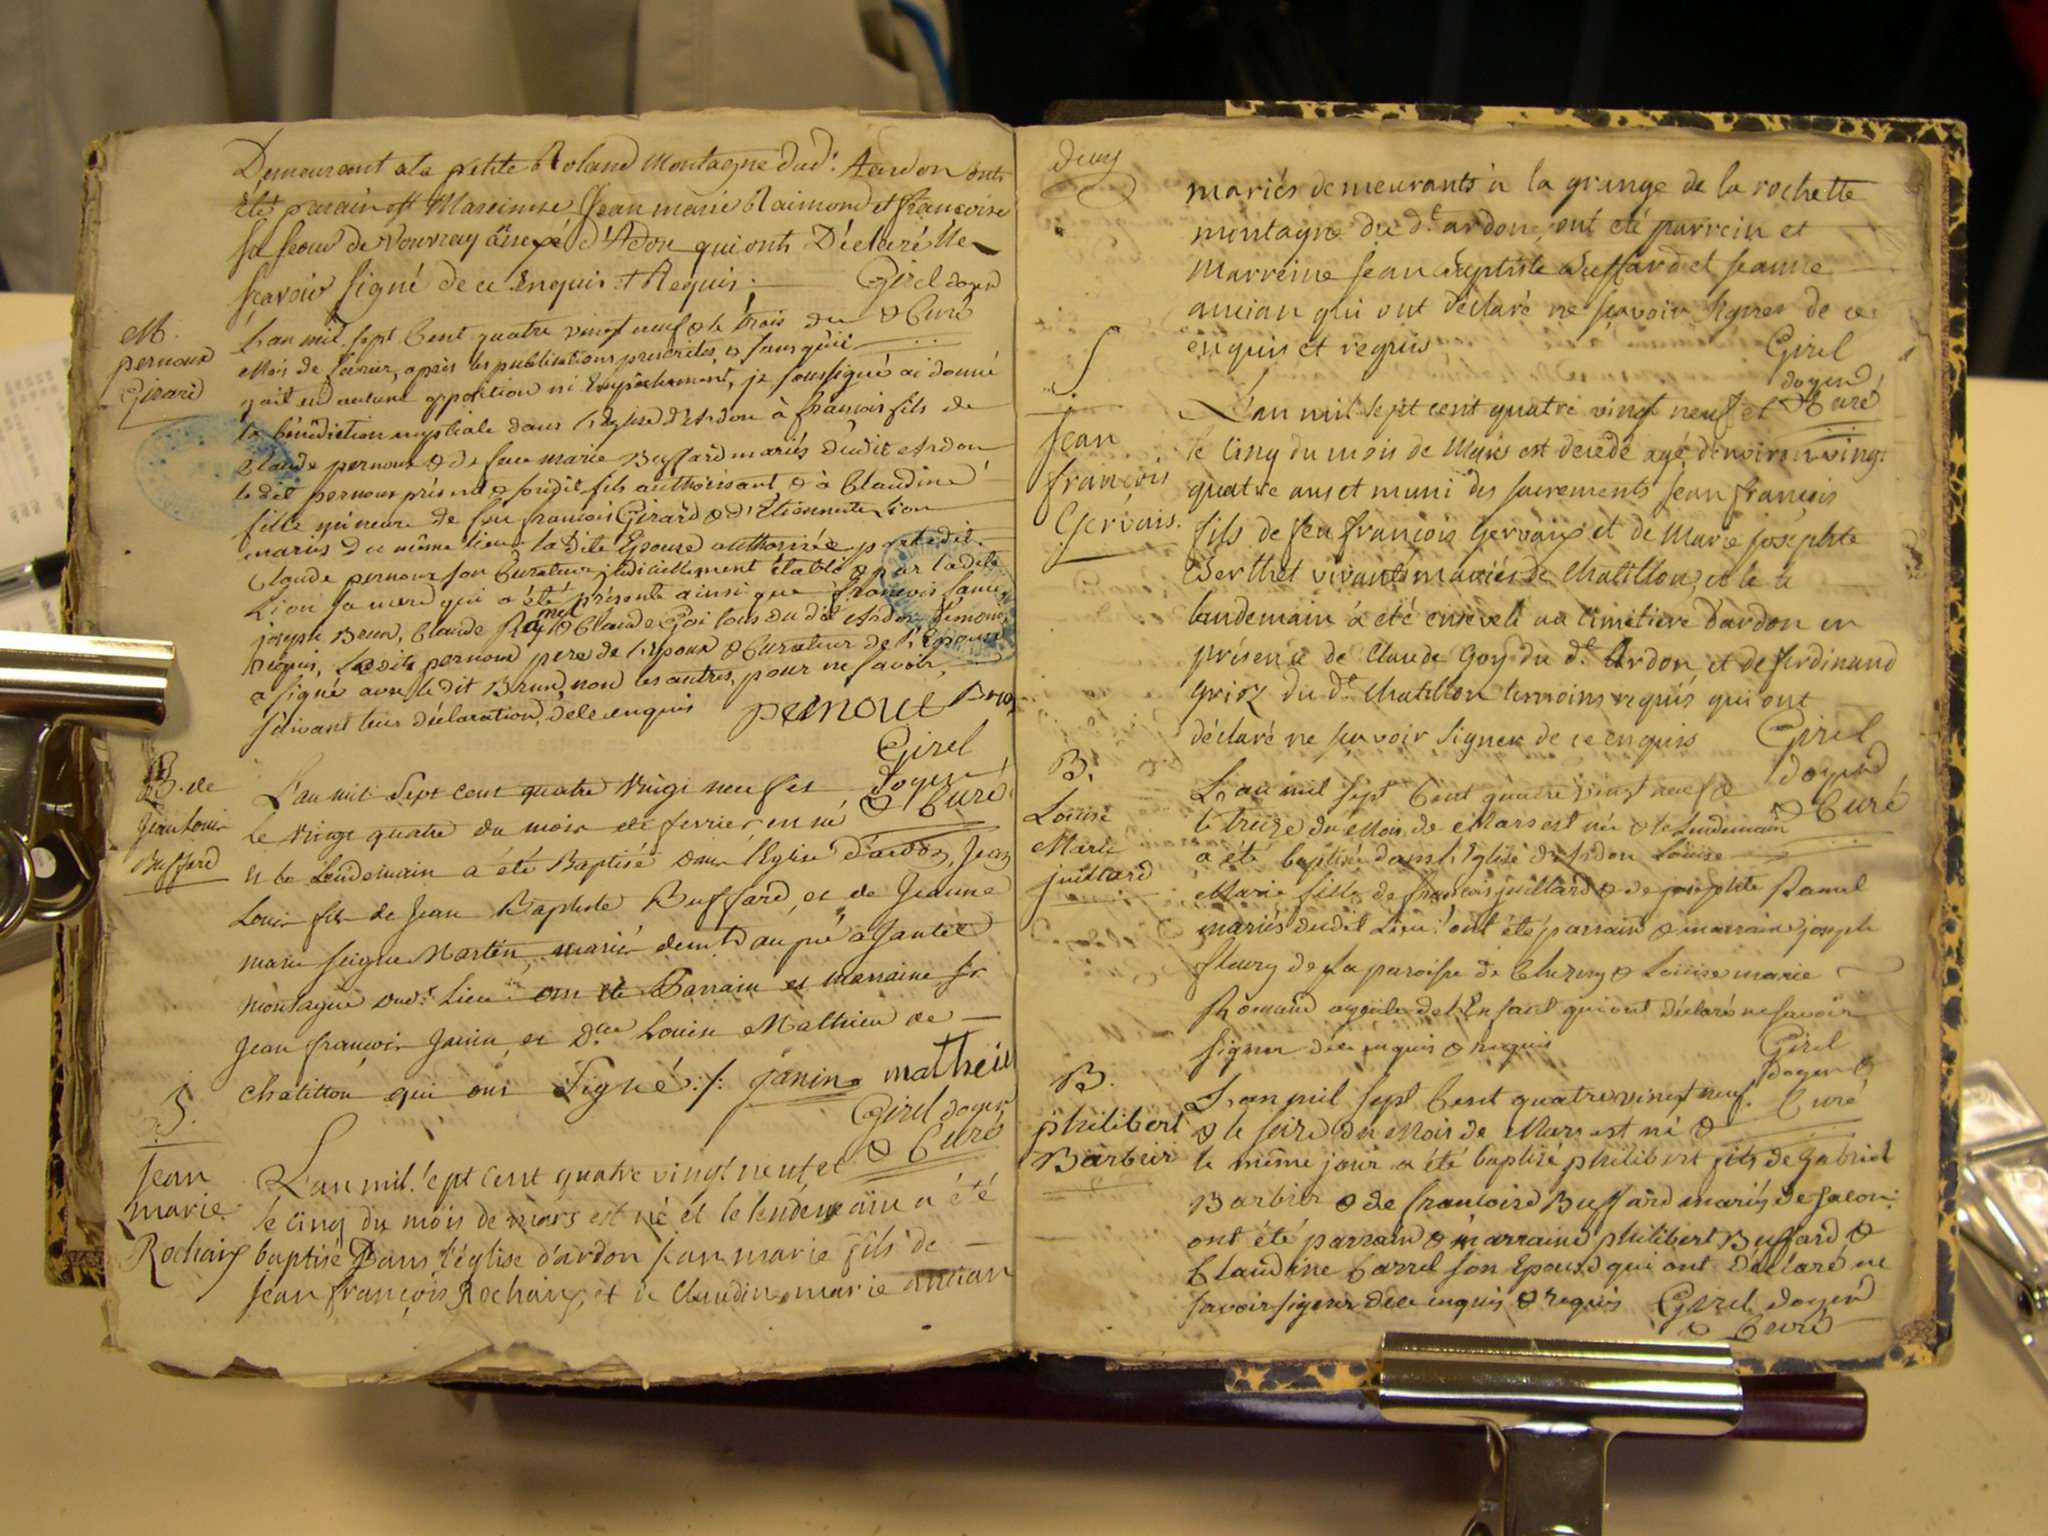 Demeurant a la petite Roland Montagne dud.t Ardon ont
été parain et Mareinne Jean marie Raimond et françoise
sa seour de Vouvray annexe d'Adon qui ont Déclaré Ne
sçavoir signé de ce Enquis et Requis.
Girel doyen
& Curé
M.
pernoux
Girard
L'an mil sept Cent quatre vingt neuf & le trois du
Mois de fevrier, après les publications prescrites, & sans qu'il
y ait eu aucune opposition ni Empêchement, je soussigné ai donné
la bénédiction nuptiale dans l'Eglise d'Ardon à françois fils de
Claude pernoux & de feue marie Buffard mariés dudit Ardon
le dit pernoux présent & sondit fils authorisant & à Claudine
fille mineure de feu francois Girard & d'Etiennette Lion
mariés du même lieu la dite Epouse authorisée par ledit
Claude pernoux son Curateur judiciellement établi & par la dite
Lion sa mere qui a été présente ainsi que françois
joseph Brun, Claude & Claude Goi tous du dit Ardon témoins
requis, ledit pernoux pere de l'Epoux & Curateur de l'Epouse
a signé avec le dit Brun, non les autres, pour ne savoir,
suivant leur déclaration, de ce enquis pernout Brun
Girel
doyen
& Curé
B. de
Jean Louis
Buffard
L'an mil Sept cent quatre vingt neuf et
le vingt quatre du mois de fevrier, en né
et le Lendemain a été Baptisé dans l'Eglise d'ardon, Jean
Louis fils de Jean Baptiste Buffard, et de Jeanne
marie seigne Martin, mariés demt au pré a Jantet
montagne dud.t Lieu ont été Parrain et marraine sr
Jean françois Janin, et D.lle Louise Mathieu de
Chatillon qui ont Signé ./. janin matheiu
Girel doyen
& Curé
S.
Jean
marie
Rochaix
L'an mil sept cent quatre vingt neuf et
le cinq du mois de mars est né et le lendemain a été
baptisé Dans l'église d'ardon jean marie fils de
jean françois Rochaix, et de Claudine marie ancian
deux
mariés demeurants à la grange de la rochette
montagne du d.t ardon, ont eté parrein et
Marreine jean Baptiste Buffard et jeanne
ancian qui ont déclaré ne sçavoir signer de ce
enquis et requis
Girel
doyen
& Curé
S
Jean
françois
Gervais.
L'an mil sept cent quatre vingt neuf et
le cinq du mois de Mars est decédé agé d'environ vingt
quatre ans et muni des sacrements jean françois
fils de feu françois Gervais et de Marie josephte
Berthet vivants mariés de Chatillon, et le
landemain à été enseveli au cimetiere d'ardon en
présence de Claude Goy du d.t Ardon, et de ferdinand
Grioz du d.t Chatillon temoins requis qui ont
déclaré ne sçavoir signer de ce enquis
Girel
doyen
& Curé
B.
Louise
Marie
juillard
L'an mil sept Cent quatre vingt neuf &
le treize du Mois de Mars est née & le Lendemain
a été baptisée dans l'Eglise d'Ardon Louise
Marie fille de francois juillard & de josephte Ramel
mariés dudit Lieu: ont été parrain & marraine joseph
fleury de la paroisse de Chezery & Louise marie
Romand ayeule de l'Enfant qui ont déclaré ne savoir
signer de ce enquis & requis
Girel
doyen &
Curé
B.
philibert
Barbier
L'an mil sept Cent quatre vingt neuf
& le seize du Mois de Mars est né &
le même jour a été baptisé philibert fils de gabriel
Barbier & de francoise Buffard mariés de
ont été parrain & marraine philibert Buffard &
Claudine Carrel son Epouse qui ont déclaré ne
savoir signer de ce enquis & requis Girel doyen
& Curé